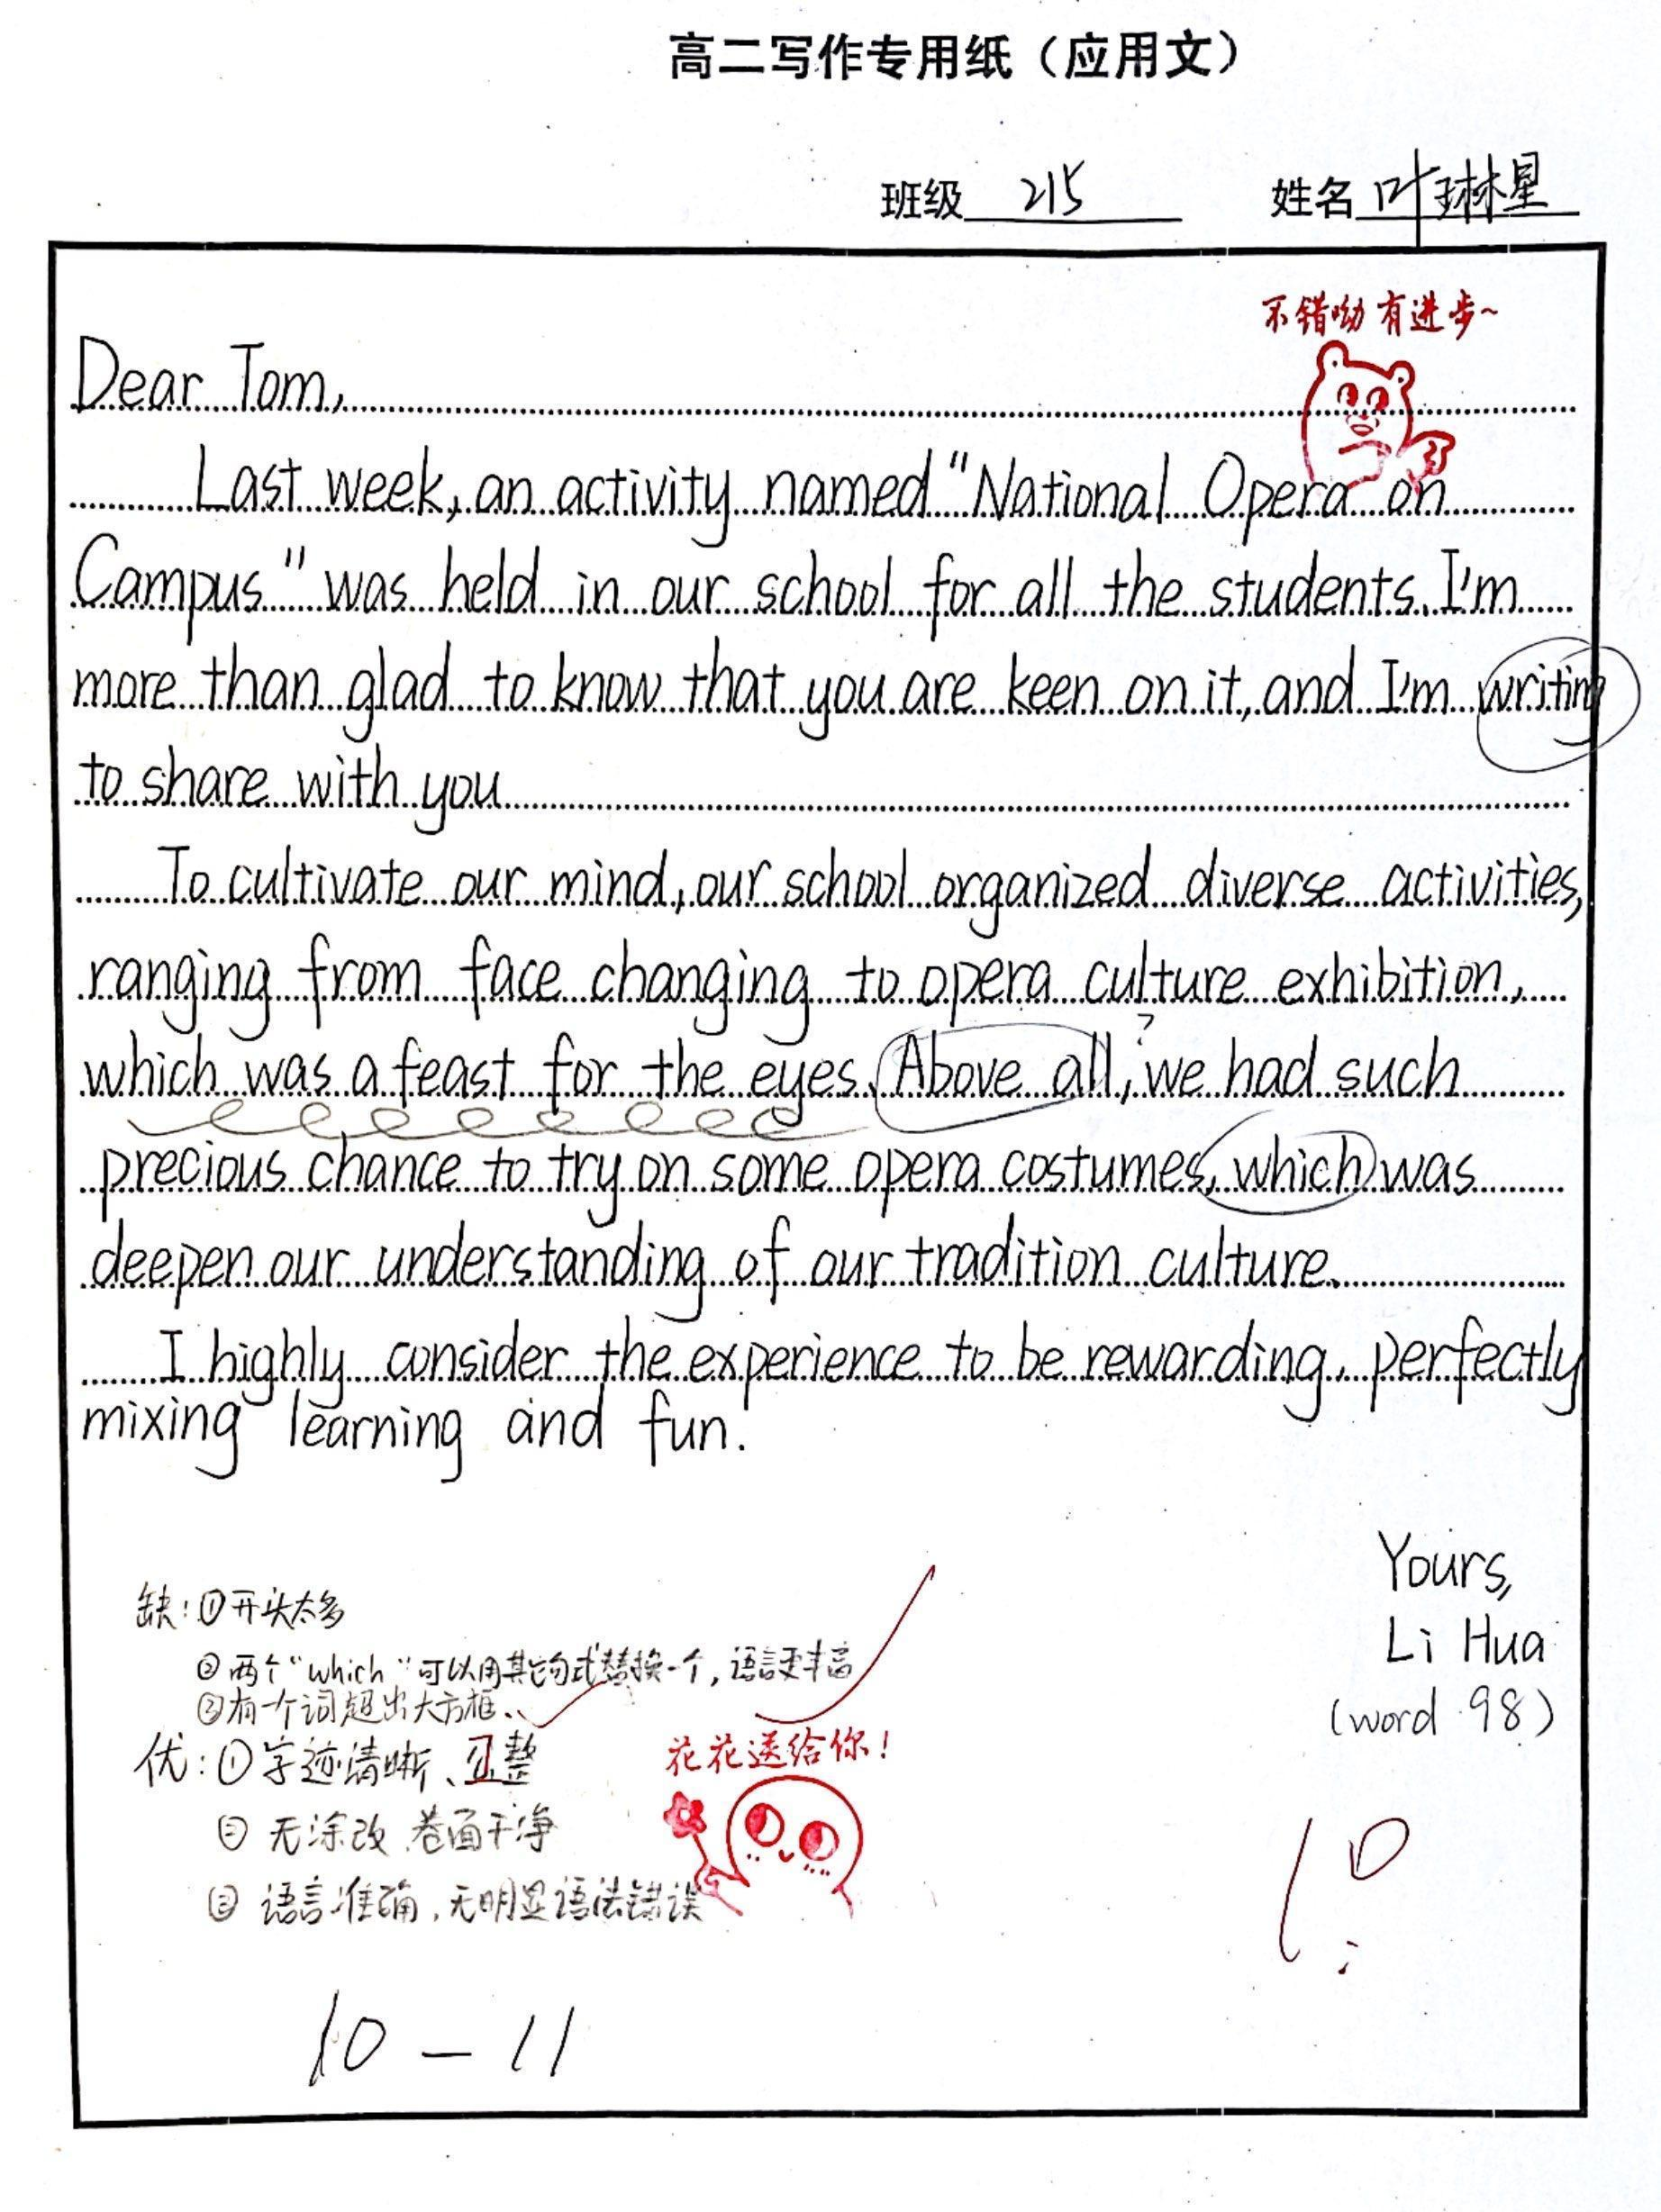 高二写作专用纸（应用文）
班级 215 姓名 叶琳星
不错呦 有进步~
Dear Tom,
Last week, an activity named "National Opera on
Campus" was held in our school for all the students. I'm
more than glad to know that you are keen on it, and I'm writing
to share with you
To cultivate our mind, our school organized diverse activities,
ranging from face changing to opera culture exhibition,
which was a feast for the eyes. Above all, we had such
?
precious chance to try on some opera costumes, which was
deepen our understanding of our tradition culture.
I highly consider the experience to be rewarding, perfectly
mixing learning and fun.
Yours,
Li Hua
(word 98)
缺：①开头太多
②两个"which"可以用其它句式替换一个，语言更丰富
③有一个词超出大方框、
优：①字迹清晰、工整
② 无涂改、卷面干净
③ 语言准确，无明显语法错误
花花送给你！
10
10 - 11